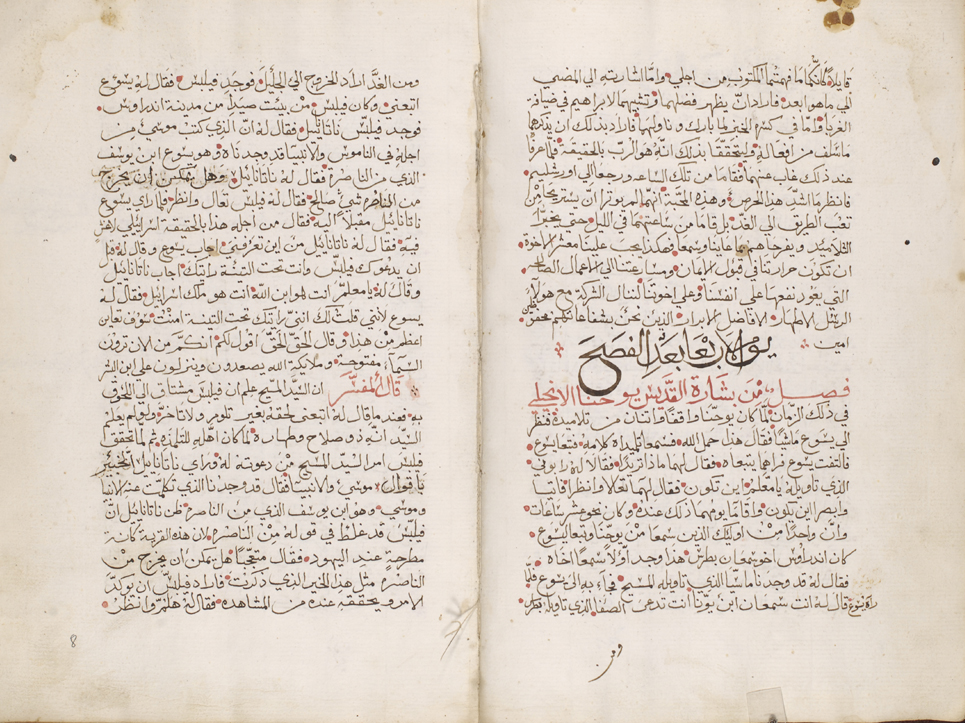 قايلاً كانكما ما فهمتما المكتوب من اجلي واما اشارته الى المضي
الى ما هو ابعد فاراد ان يظهر فضلهما وتشبههما لابراهيم في ضيافة
الغربا واما في كسر الخبز لما بارك وناولهما فاراد بذلك ان يذكرهما
ما سلف من افعاله وليتحققا بذلك انه هو الرب بالحقيقة فلما عرفا
عند ذلك غاب عنهما فقاما من تلك الساعه ورجعا الى اورشليم
فانظر ما اشد هذا الحرص وهذه المحبة انهما لم يوثرا ان يستريحا من
تعب الطريق الى الغد بل قاما من ساعتهما في الليل حتى يخبرا
التلاميذ ويفرحاهم بما عاينا وسمعا فهكذا يجب علينا معشر الاخوة
ان تكون حرارتنا في قبول الايمان ومسارعتنا الى الاعمال الصالحه
التي يعود نفعها على انفسنا وعلى اخوتنا لننال الشركة مع هولاء
الرسل الاطهار الافاضل الابرار الذين نحن بشفاعاتهم محفوظين
امين
يوم الاربعا بعد الفصح
فصل من بشارة القديس يوحنا الانجيلي
في ذلك الزمان لما كان يوحنا واقفاً واثنان من تلاميذه فنظر
الى يسوع ماشياً فقال هذا حمل الله فسمعا تلميذاه كلامه فتبعا يسوع
فالتفت يسوع فراهما يتبعاه فقال لهما ماذا تريدا فقالا له رابوني
الذي تاويله يا معلم اين تكون فقال لهما تعالا وانظرا فاتيا
وابصرا اين يكون واقاما يومهما ذلك عنده وكان نحو عشر ساعات
وان واحداً من اوليك الذين سمعا من يوحنا وتبعا ليسوع
كان اندراوس اخو سمعان بطرس هذا وجد اولاً سمعان اخاه
فقال له قد وجدنا ماسيا الذي تاويله المسيح فجاء به الى يسوع فلما
راه يسوع قال له انت سمعان ابن يونا انت تدعى الصفا الذي تاويله بطرس
ومن
ومن الغد اراد الخروج الى الجليل فوجد فيلبس فقال له يسوع
اتبعني وكان فيلبس من بيت صيدا من مدينة اندراوس
فوجد فيلبس ناتانائيل فقال له ان الذي كتب موسى من
اجله في الناموس والانبيا قد وجدناه وهو يسوع ابن يوسف
الذي من الناصرة فقال له ناتانائيل وهل يمكن ان يخرج
من الناصره شي صالح فقال له فيلبس تعال وانظر فلما راى يسوع
ناتانائيل مقبلاً اليه فقال من اجله هذا بالحقيقة اسرائيلي لا غش
فيه فقال له ناتانائيل من اين تعرفني اجاب يسوع وقال له قبل
ان يدعوك فيلبس وانت تحت التينة راتك اجاب ناتانائيل
وقال له يا معلم انت لهو ابن الله انت هو ملك اسرائيل فقال له
يسوع لانني قلت لك انني راتك تحت التينة امنت سوف تعاين
اعظم من هذا وقال الحق الحق اقول لكم انكم من الان ترون
السماء مفتوحة وملايكة الله يصعدون وينزلون على ابن البشر
قال المفسر ان السيد المسيح علم ان فيلبس مشتاق الى اللحوق
به فعندما قال له اتبعني لحقه بغير تلوم ولا تاخر ولو لم يعلم
السيد انه ذو صلاح وطهارة لما كان اهله للتلمذه ثم لما تحقق
فيلبس امر السيد المسيح من دعوته له وراى ناتانائيل الخبير
باقوال موسى والانبيا فقال قد وجدنا الذي تكلمت عنه الانبيا
وموسى وهو ابن يوسف الذي من الناصره ظن ناتانائيل ان
فيلبس قد غلط في قوله من الناصره لان هذه القرية كانت
مطرحة عند اليهود فقال متعجباً هل يمكن ان يخرج من
الناصره مثل هذا الخبر الذي ذكرت فاراد فيلبس ان يوكد
الامر ويحققه عنده من المشاهده فقال له هلم وانظر
8